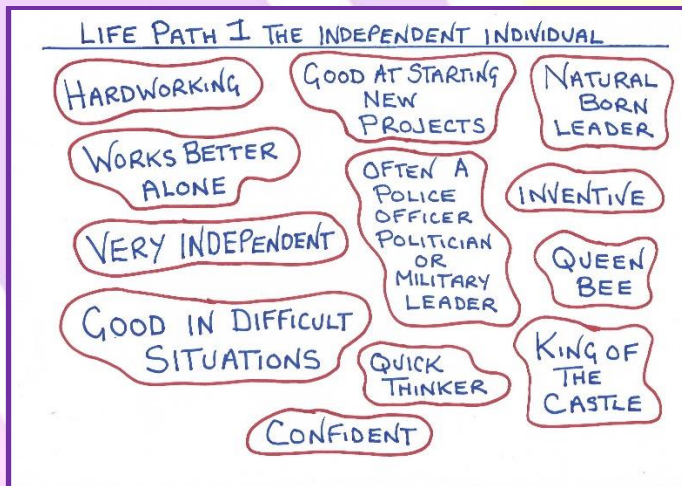 LIFE PATH 1 THE INDEPENDENT INDIVIDUAL
HARDWORKING
GOOD AT STARTING
NEW
PROJECTS
NATURAL
BORN
LEADER
WORKS BETTER
ALONE
OFTEN A
POLICE
OFFICER
POLITICIAN
OR
MILITARY
LEADER
INVENTIVE
VERY INDEPENDENT
QUEEN
BEE
GOOD IN DIFFICULT
SITUATIONS
QUICK
THINKER
KING OF
THE
CASTLE
CONFIDENT